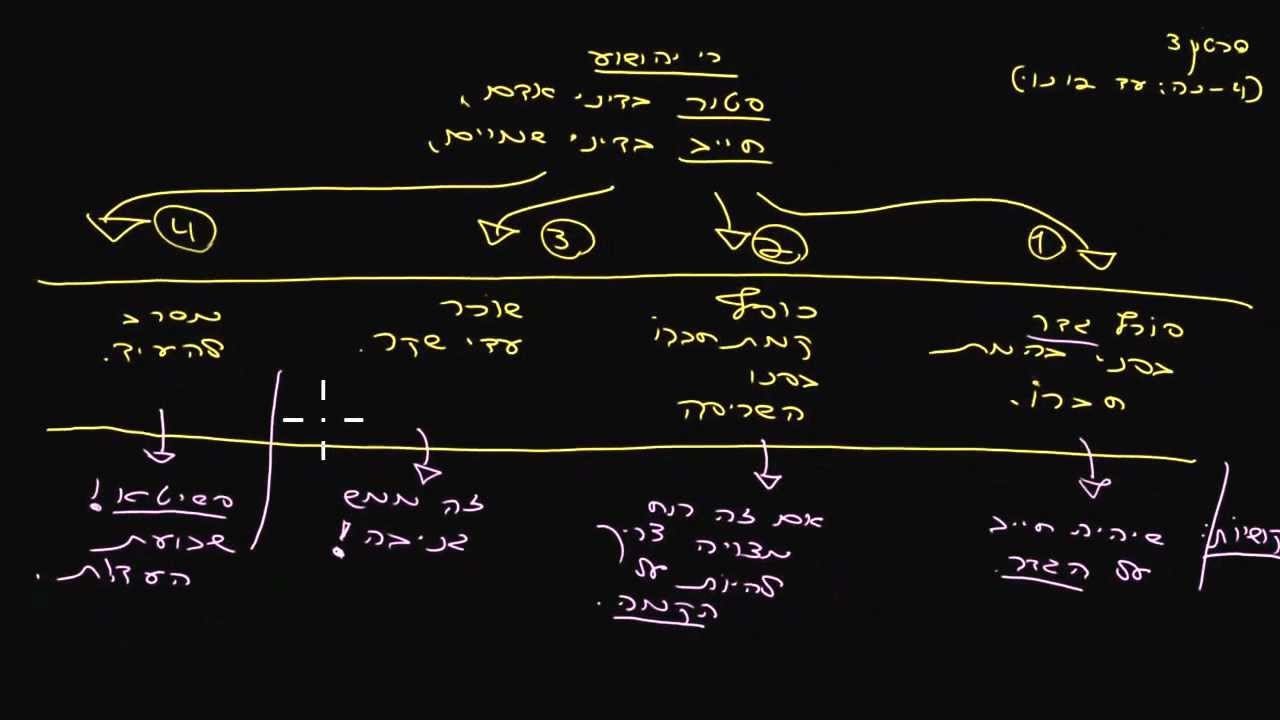 סרטון 3
(4-נה: עד בינו:)
רי יהושוע
פטור בדיני אדם,
חייב בדיני שמיים,
1
2
3
4
פורץ גדר
בפני בהמת
חברו.
כופף
קמת חברו
בפני
השריפה
שוכר
עדי שקר.
מסרב
להעיד.
קושיות:
שיהיה חייב
על הגדר.
אם זה רוח
מצויה צריך
להיות על
הקמה.
זה ממש
גניבה!
פשיטא!
שבועת
העדות.